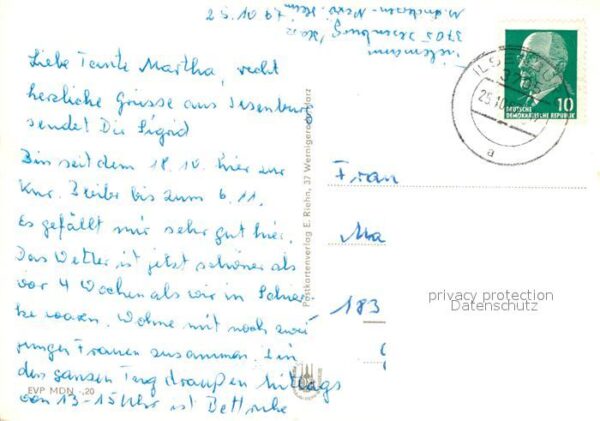 Liebe Tante Martha, recht
herzliche Grüsse aus Ilsenburg
sendet Dir Sigrid
Bin seit dem 18.10. hier zur
Kur. bis zum 6.11.
Es gefällt mir sehr gut hier.
Das Wetter ist jetzt schöner als
vor 4 Wochen als wir in Schier-
ke waren. Wohne mit noch zwei
jungen Frauen zusammen. Bin
den ganzen Tag draußen Mittags
von 13-15 Uhr ist Bettruhe
EVP MDN -,20
Postkartenverlag E. Riehn, 37 Wernigerode/Harz
3705 Ilsenburg/Harz
ILSENBURG
3705
25.10
a
10
DEUTSCHE
DEMOKRATISCHE REPUBLIK
Frau
Ma
183
privacy protection
Datenschutz